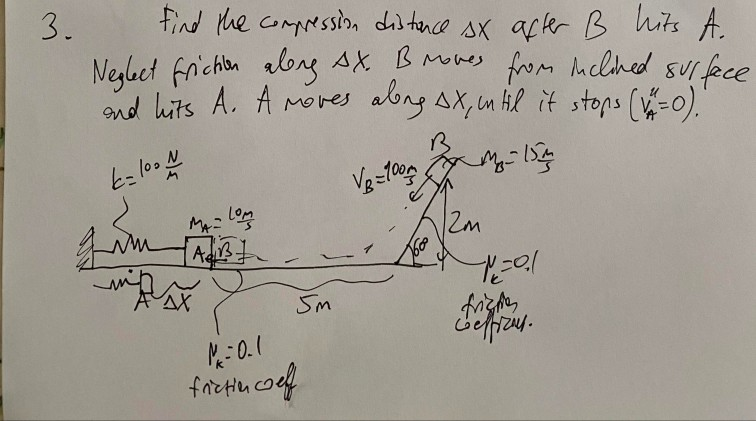 3. Find the compression distance ΔX after B hits A.
Neglect friction along ΔX. B moves from inclined surface
and hits A. A moves along ΔX, until it stops (V"A=0).
k=100 N/m
MA=10 m/s
VB=100 m/s
B
MB=15 m/s
2m
60
A
B
μk=0.1
friction
coefficient.
A ΔX
5m
μk=0.1
friction coeff